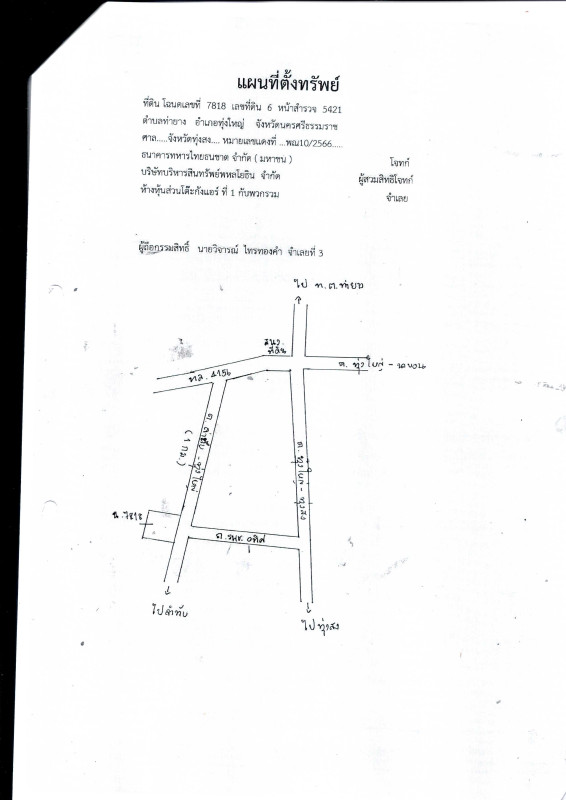 แผนที่ตั้งทรัพย์
ที่ดิน โฉนดเลขที่ 7818 เลขที่ดิน 6 หน้าสำรวจ 5421
ตำบลท่ายาง อำเภอทุ่งใหญ่ จังหวัดนครศรีธรรมราช
ศาล.....จังหวัดทุ่งสง.... หมายเลขแดงที่ ...พณ10/2566.....
ธนาคารทหารไทยธนชาต จำกัด ( มหาชน ) โจทก์
บริษัทบริหารสินทรัพย์พหลโยธิน จำกัด ผู้สวมสิทธิโจทก์
ห้างหุ้นส่วนโต๊ะกังแอร์ ที่ 1 กับพวกรวม จำเลย
ผู้ถือกรรมสิทธิ์ นายวิจารณ์ ไทรทองคำ จำเลยที่ 3
ไป ท.ต.ท่ายาง
ที่ดิน
ทล. 4156
ถ. ทุ่งใหญ่ -
ถ. ลำทับ - ทุ่งใหญ่
(1 กม.)
ถ. ทุ่งใหญ่ - ทุ่งสง
น.7818
ถ. รพช. อุทิศ
ไปลำทับ
ไปทุ่งสง